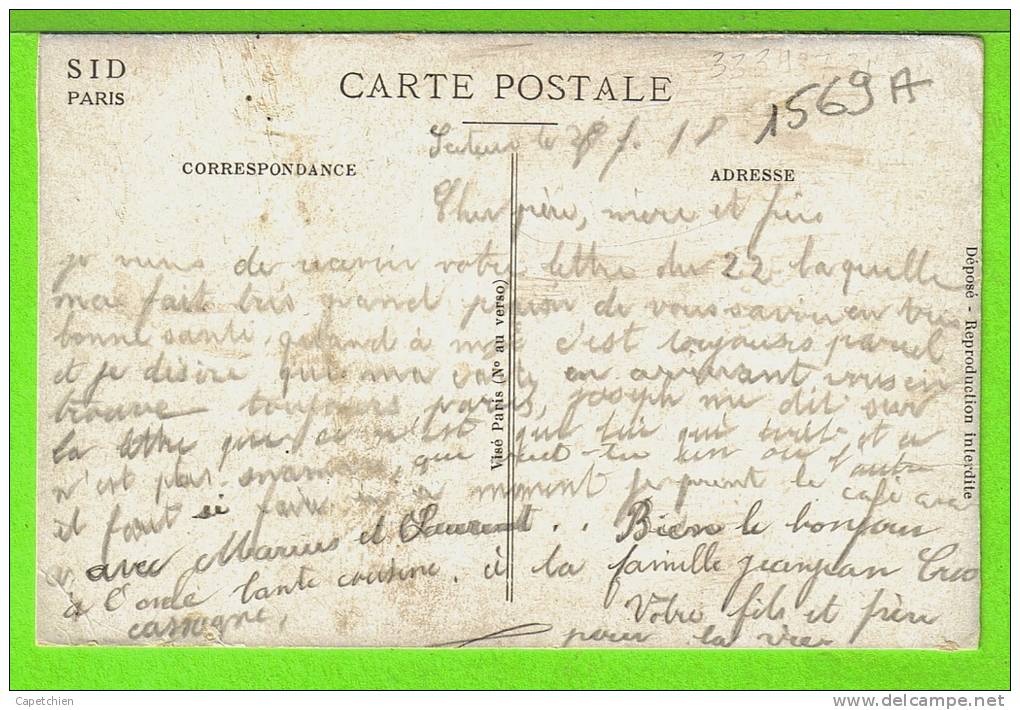 SID
PARIS
CARTE POSTALE
1569 A
CORRESPONDANCE
ADRESSE
le 28 f. 18
Cher père, mère et
je viens de votre lettre du 22 laquelle
ma fait tres grand de vous savoir en
bonne santé quand à moi c'est toujours pareil
et je désire que ma carte en arrivant vous en
trouve toujours joseph me dit sur
la lettre que ce n'est que lui qui écrit et ce
n'est pas maman, que veut tu un ou l'autre
il faut si faire moment je prend le café
avec Marius et Laurent .. Bien le bonjour
à l'oncle tante cousine, à la famille
cassagne, Votre fils et frère
pour la vie
Visé Paris (No au verso)
Déposé - Reproduction interdite
Capetchien
www.delcampe.net